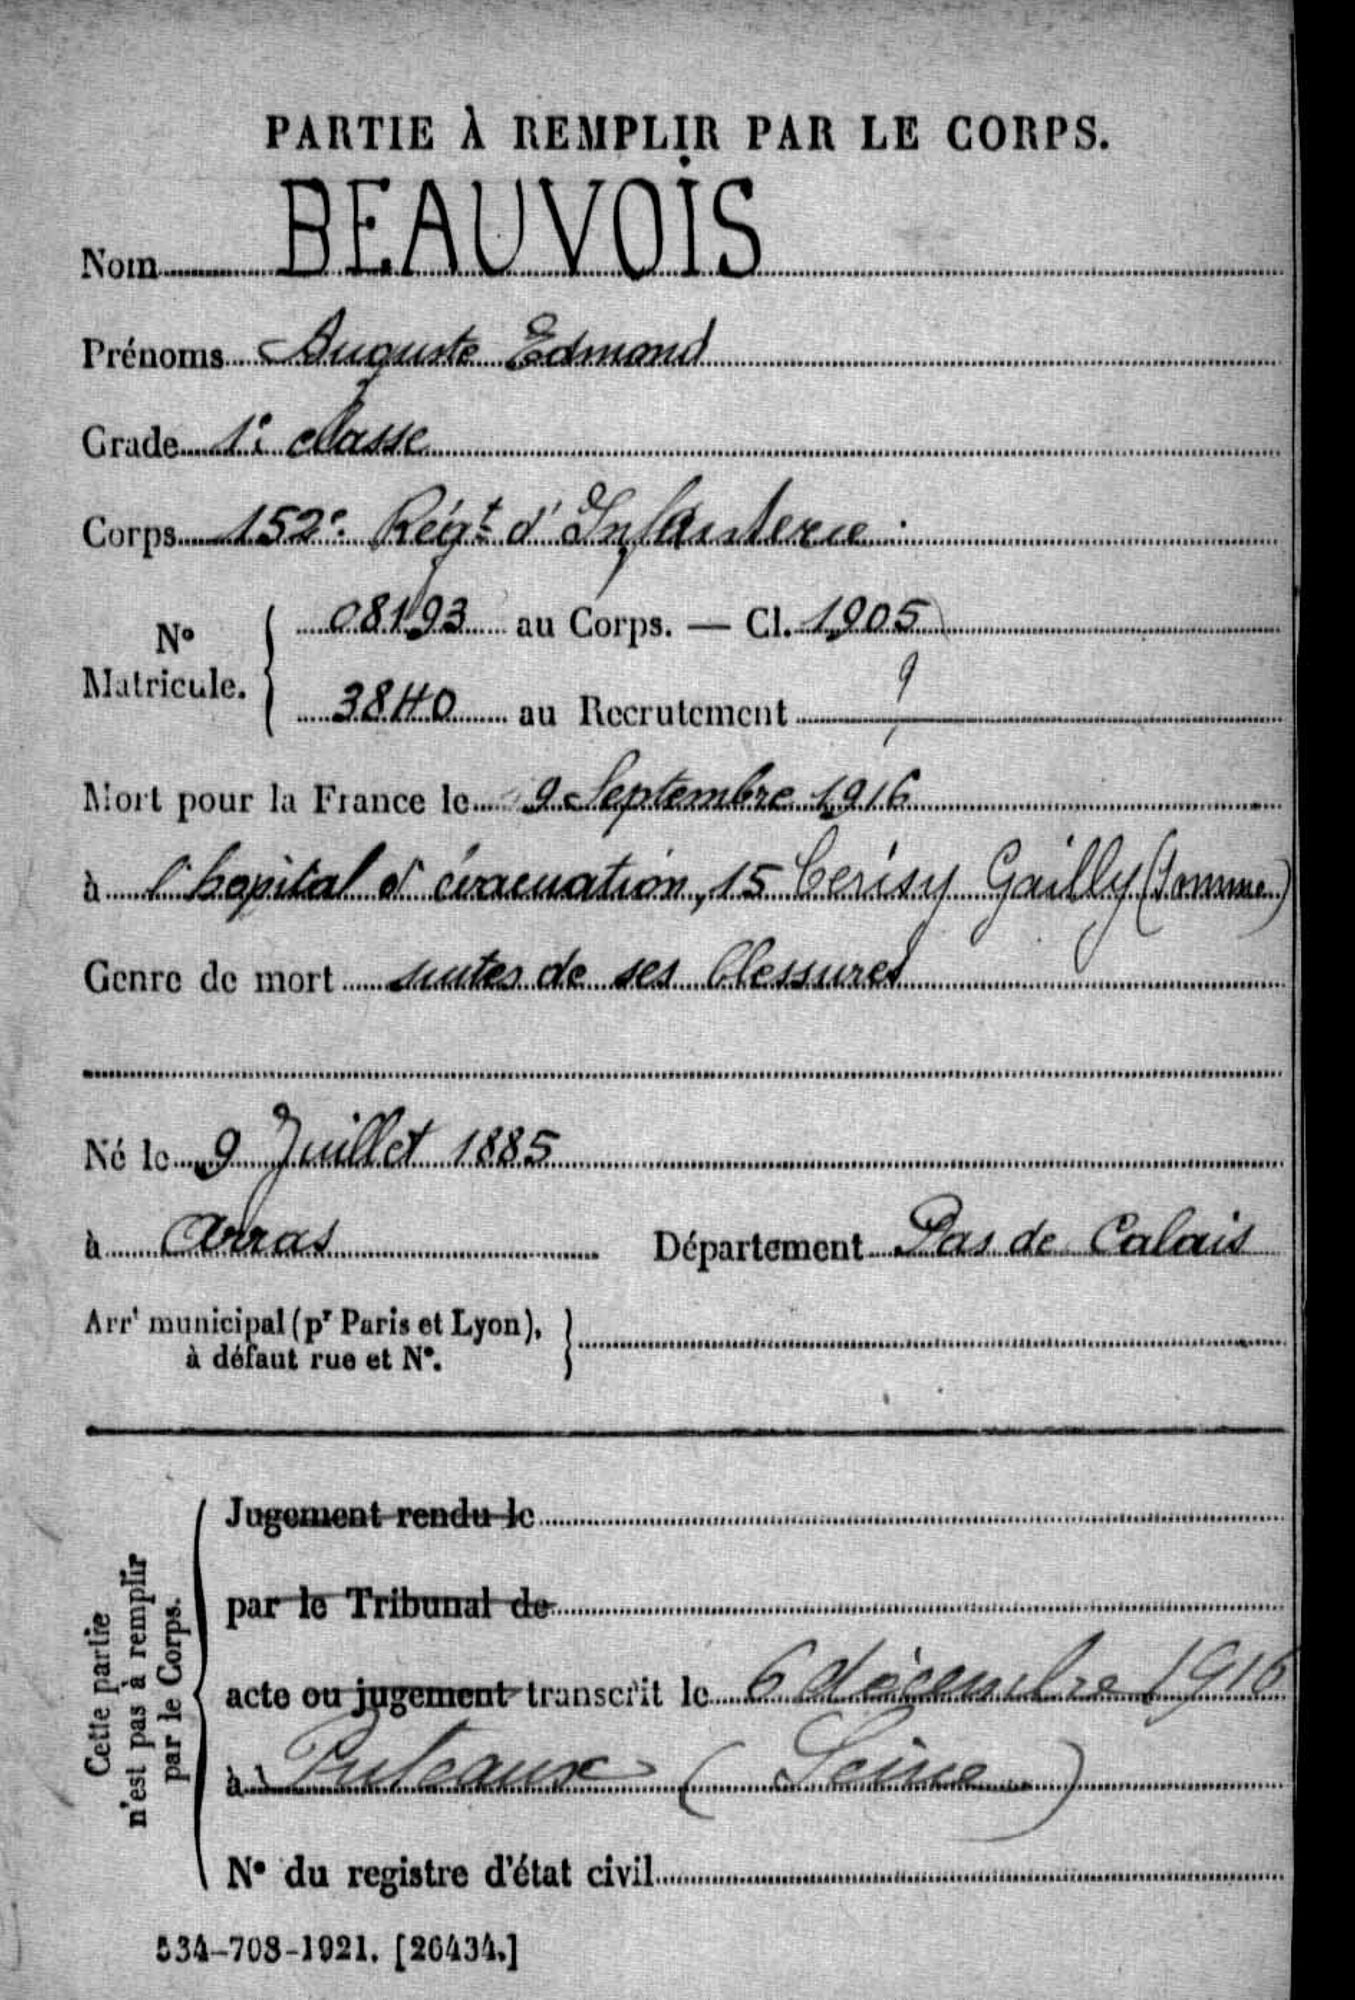 PARTIE À REMPLIR PAR LE CORPS.
Nom BEAUVOIS
Prénoms Auguste Edmond
Grade 1e classe
Corps 152e Régt d'Infanterie
N° Matricule. 08193 au Corps. — Cl. 1905
3840 au Recrutement ?
Mort pour la France le 9 Septembre 1916
à l'hopital d'évacuation, 15 Cerisy Gailly (Somme)
Genre de mort suites de ses blessures
Né le 9 Juillet 1885
à Arras Département Pas de Calais
Arrt municipal (pr Paris et Lyon),
à défaut rue et N°.
Cette partie
n'est pas à remplir
par le Corps.
Jugement rendu le
par le Tribunal de
acte ou jugement transcrit le 6 décembre 1916
à Puteaux (Seine)
N° du registre d'état civil
534-708-1921. [26434.]